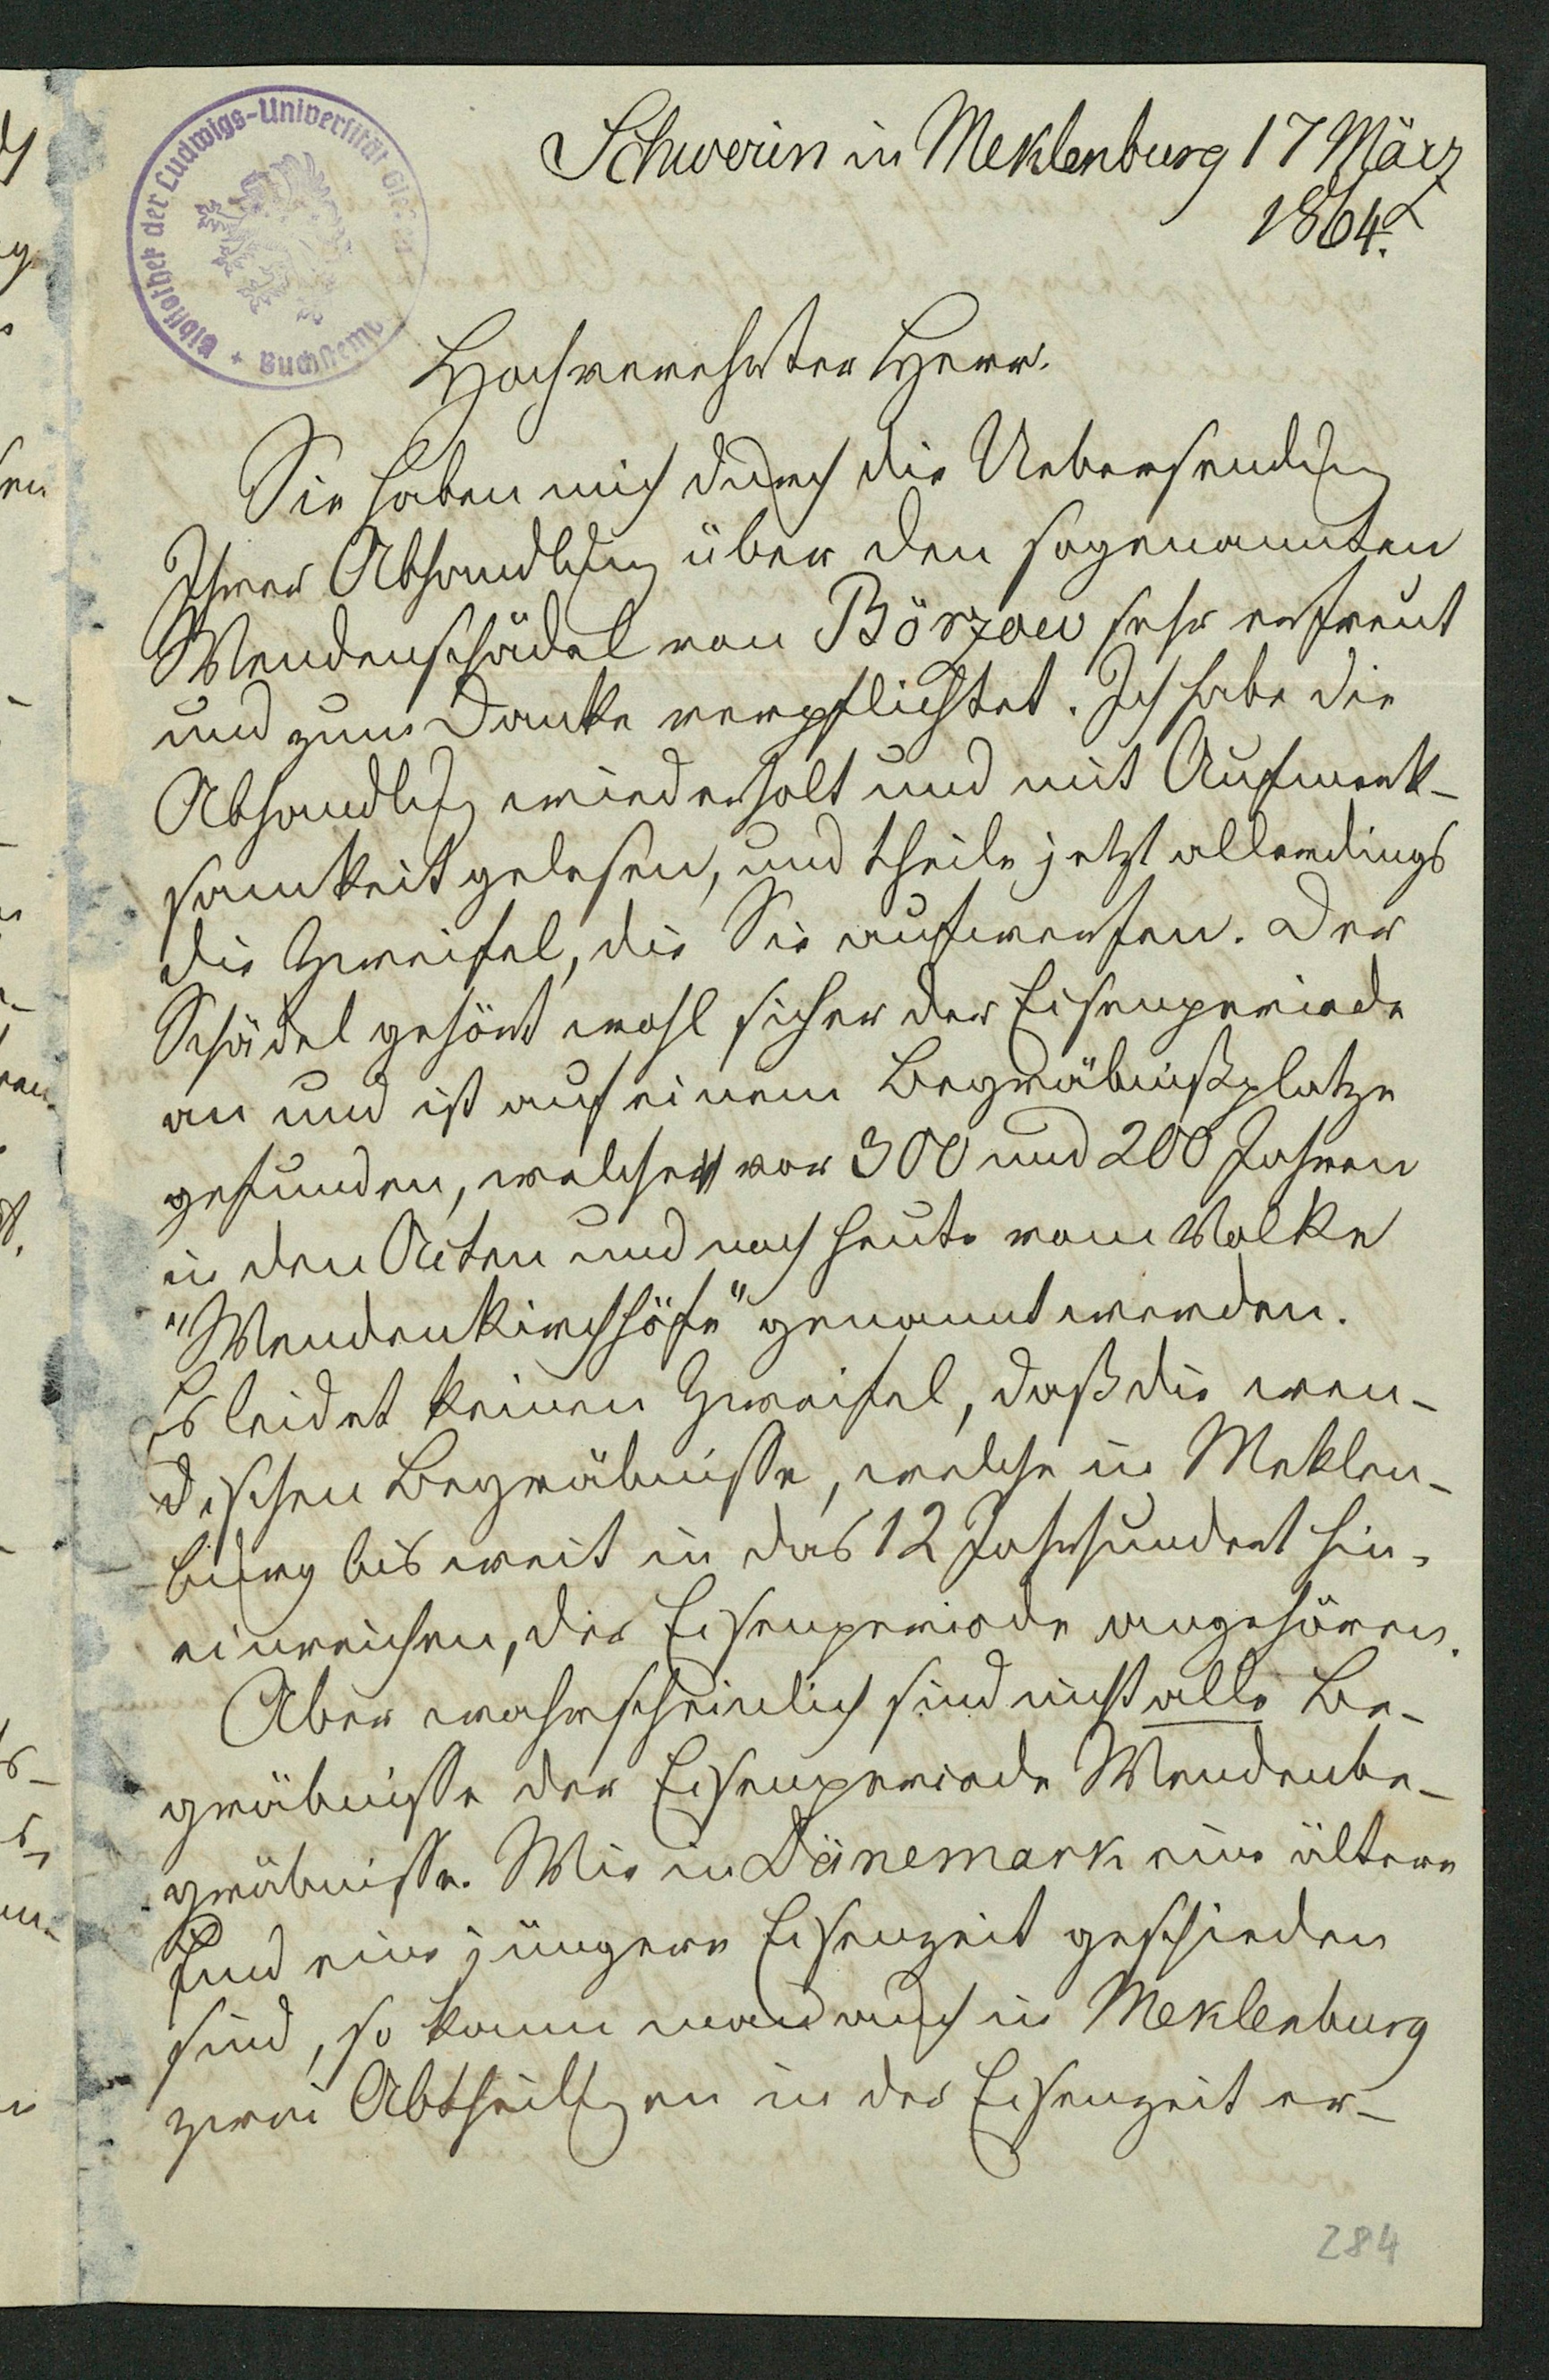 Bibliothek der Ludwigs-Universität Gießen
Schwerin in Meklenburg 17 März
1864.
Hochverehrter Herr.
Sie haben mich durch die Uebersendung
Ihrer Abhandlung über den sogenannten
Wendenschädel von Börzow sehr erfreut
und zum Danke verpflichtet. Ich habe die
Abhandlung wiederholt und mit Aufmerk-
samkeit gelesen, und theile jetzt allerdings
die Zweifel, die Sie aufwerfen. Der
Schädel gehört wohl sicher der Eisenperiode
an und ist auf einem Begräbnißplatze
gefunden, welche vor 300 und 200 Jahren
in den Acten und noch heute vom Volke
"Wendenkirchhöfe" genannt werden.
Es leidet keinen Zweifel, daß die wen-
dischen Begräbnisse, welche in Meklen-
burg bis weit in das 12 Jahrhundert hin-
einreichen, der Eisenperiode angehören.
Aber wahrscheinlich sind nicht alle Be-
gräbnisse der Eisenperiode Wendenbe-
gräbnisse. Wie in Dänemark eine ältere
und eine jüngere Eisenzeit geschieden
sind, so kann man auch in Meklenburg
zwei Abtheilungen in der Eisenzeit er-
284